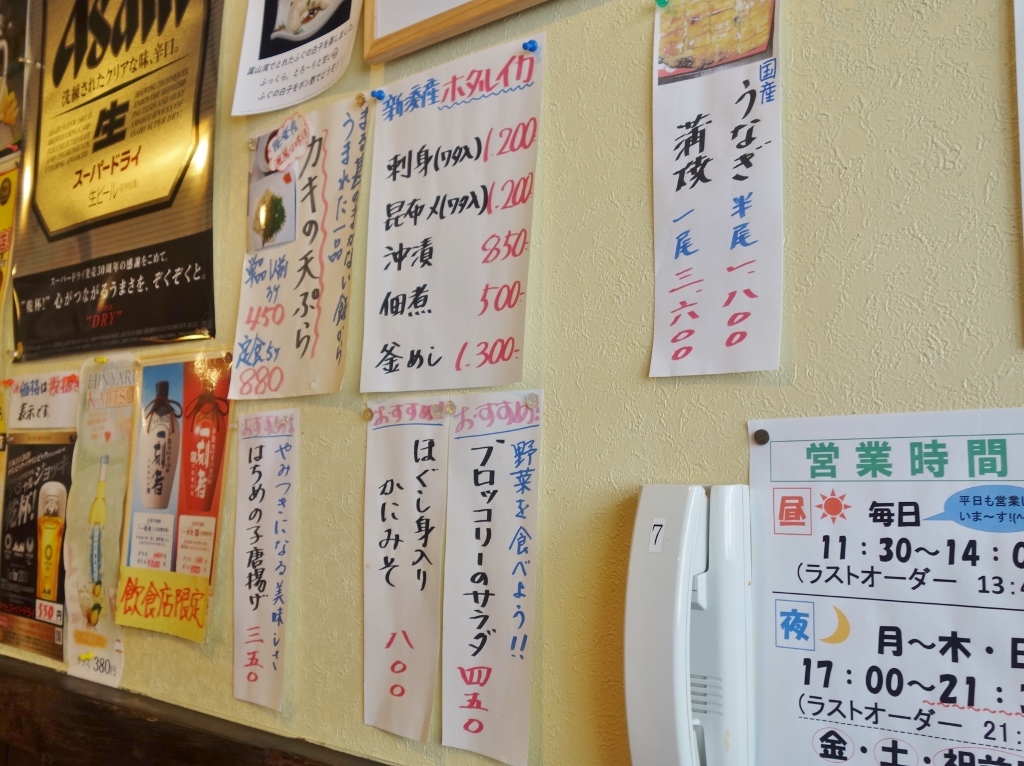 Asahi
洗練されたクリアな味、辛口。
生
スーパードライ
生ビール
スーパードライ発売30周年の感謝をこめて、
"乾杯!"心がつながるうまさを、ぞくぞくと。
"DRY"
価格は税抜き
表示です。
550円
グラス 380円
一刻者
一刻者
飲食店限定
富山湾でとれたふぐの白子を蒸しました
ふっくら、とろ〜りと甘い
ふぐの白子をポン酢でどうぞ!
うまれた一品
カキの天ぷら
単品
3ケ
450
定食5ケ
880
新湊産ホタルイカ
刺身(ワタ入) 1.200
昆布〆(ワタ入) 1.200
沖漬 850-
佃煮 500-
釜めし 1.300-
国産
うなぎ 半尾 一、八〇〇
蒲焼 一尾 三、六〇〇
おすすめ!
やみつきになる美味しさ
はちめの子唐揚げ 三五〇
おすすめ!
ほぐし身入り
かにみそ 八〇〇
おすすめ!!
野菜を食べよう!!
ブロッコリーのサラダ 四五〇
7
営業時間
昼 毎日
平日も営業し
いま〜す!(^
11:30〜14:0
(ラストオーダー 13:4
夜 月〜木・日
17:00〜21:3
(ラストオーダー 21:
金・土・祝前日